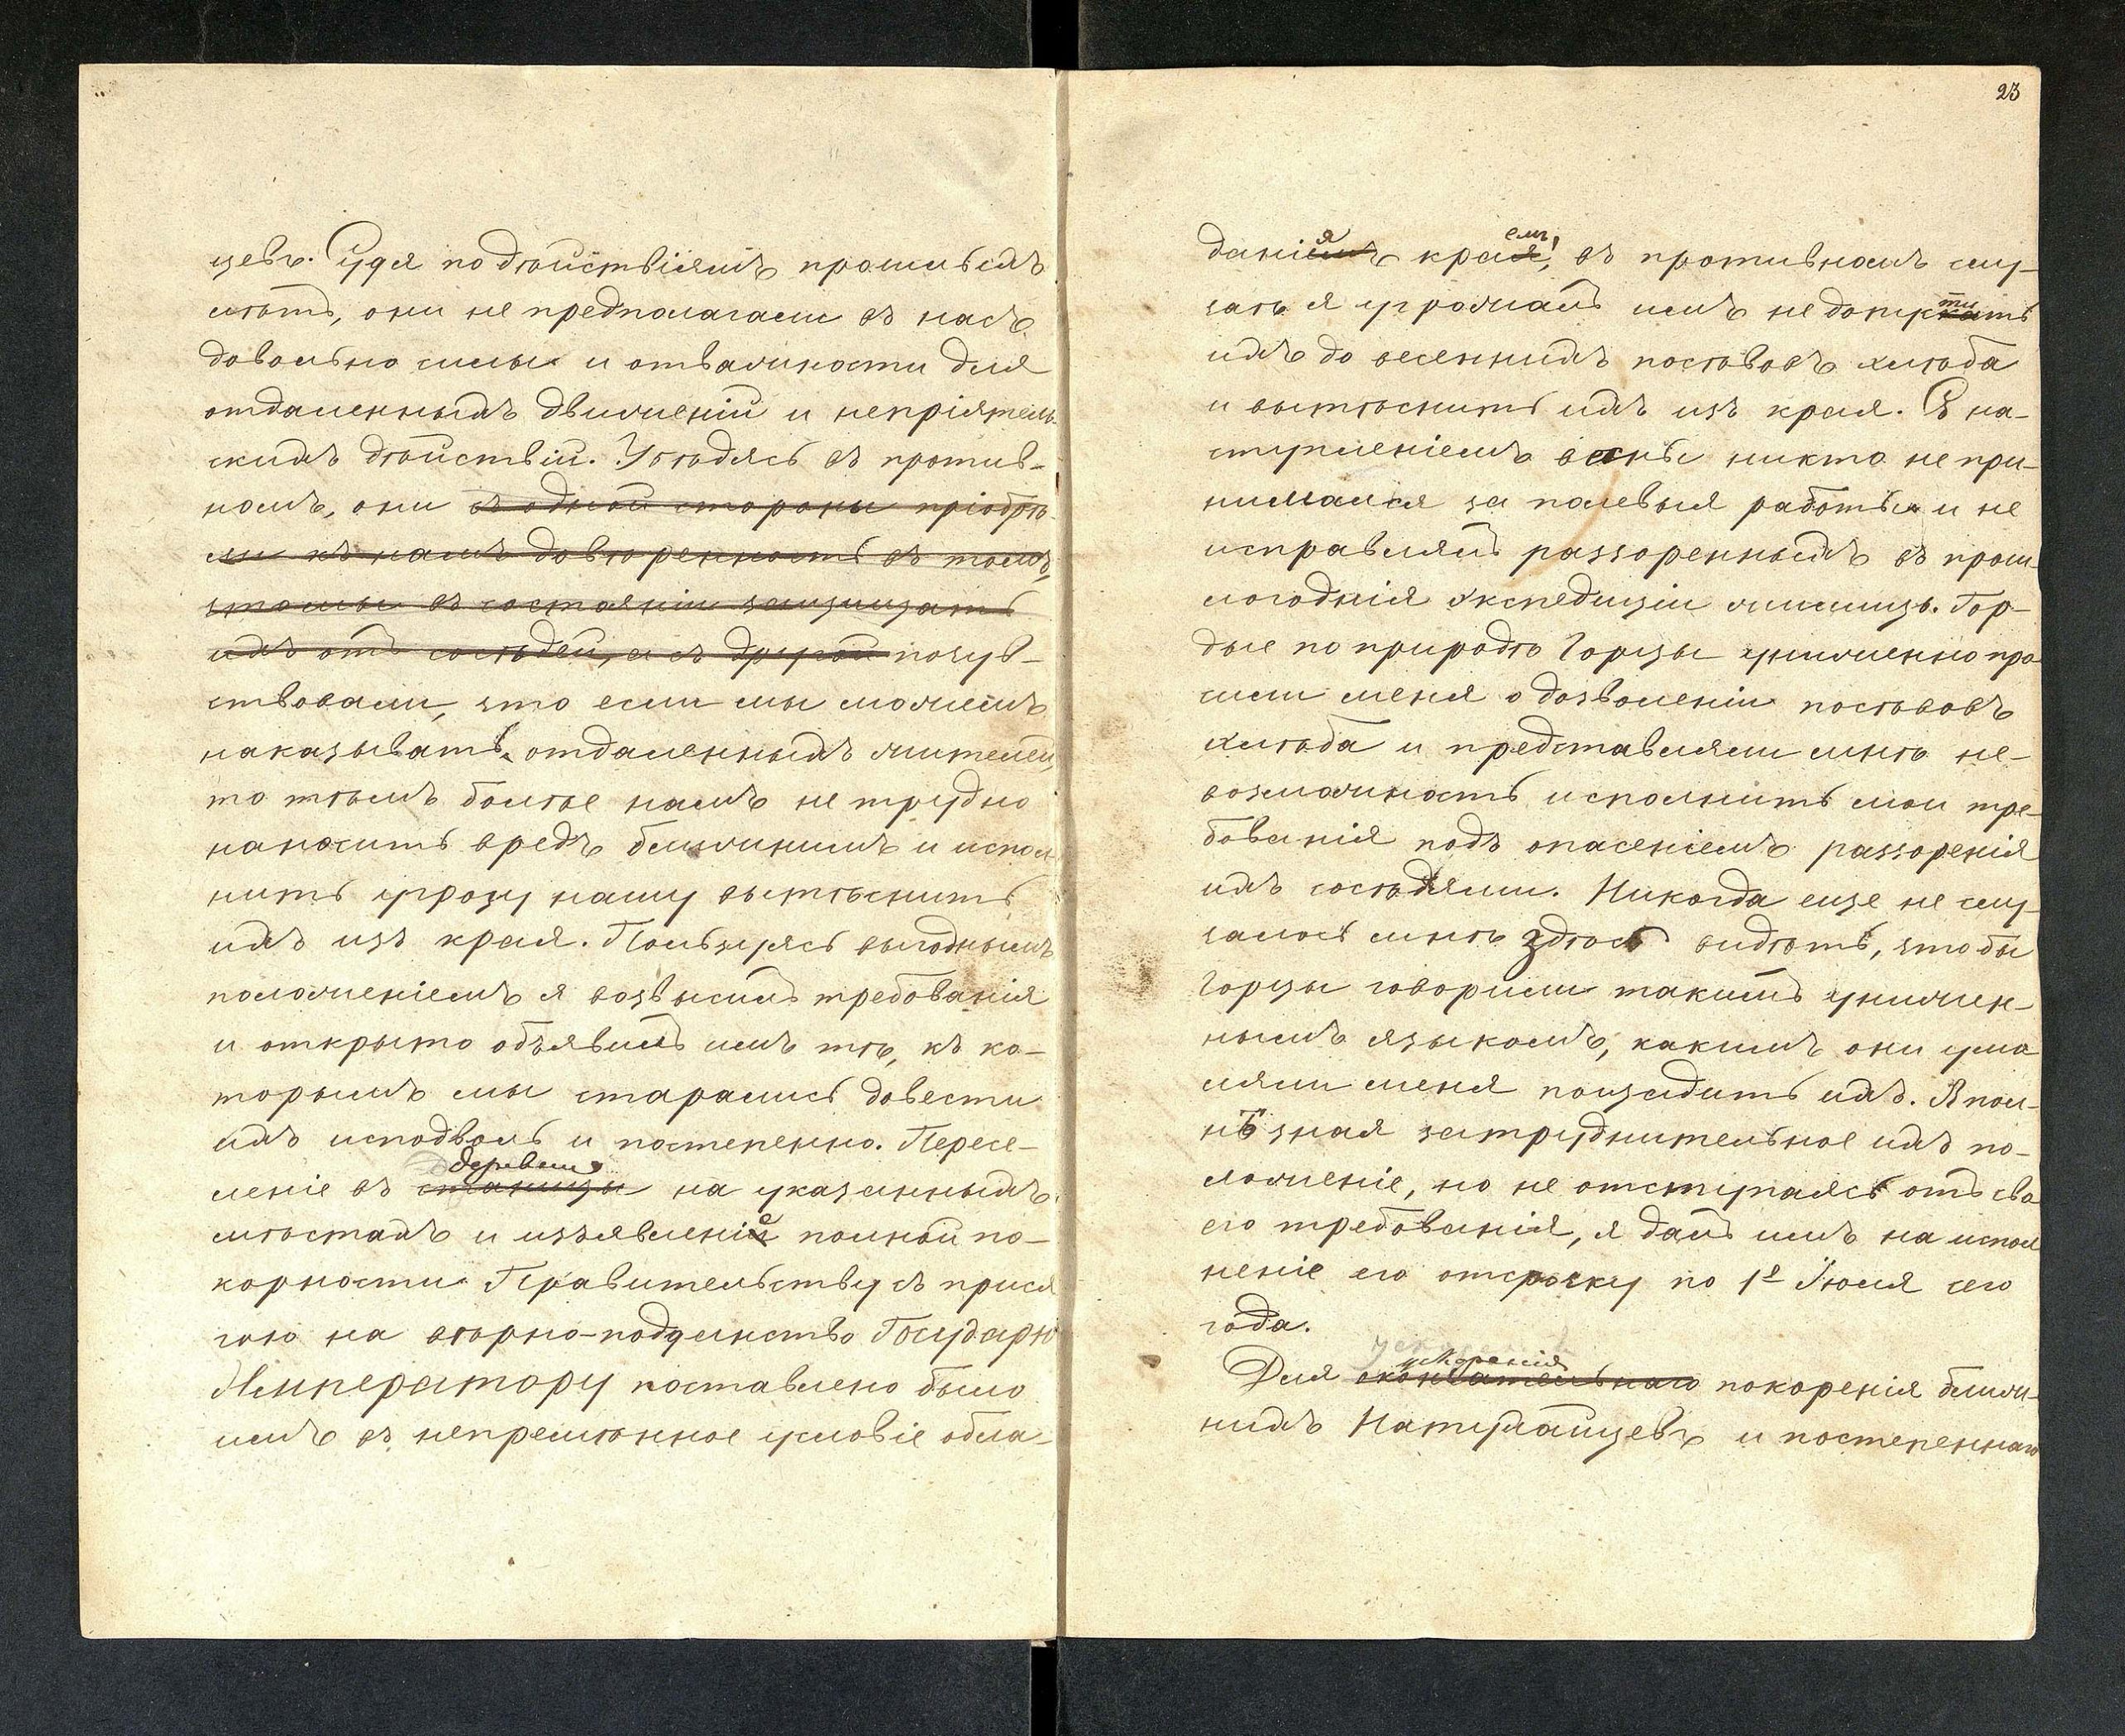 цевъ. Судя по дѣйствіямъ прошлыхъ
лѣтъ, они не предполагали въ насъ
довольно силы и отважности для
отдаленныхъ движеній и непріятель-
скихъ дѣйствій. Убѣдясь въ против-
номъ, они съ одной стороны пріобрѣ-
ли къ намъ довѣренность въ томъ,
что мы въ состояніи защищать
ихъ отъ сосѣдей, а съ другой почув-
ствовали, что если мы можемъ
наказывать отдаленныхъ жителей,
то тѣмъ болѣе намъ не трудно
наносить вредъ ближнимъ и испол-
нить угрозу нашу вытѣснить
ихъ изъ края. Пользуясь выгоднымъ
положеніемъ я возвысилъ требованія
и открыто объявилъ имъ тѣ, къ ко-
торымъ мы старались довести
ихъ исподволь и постепенно. Пересе-
деревни
леніе въ станицы на указанныхъ
мѣстахъ и изъявленіе полной по-
корности Правительству съ прися
гою на вѣрно-подданство Государю
Императору поставлено было
имъ въ непремѣнное условіе обла-
23
я емъ,
даніемъ края, въ противномъ слу-
чаѣ я угрожалъ имъ не допускать
ти
ихъ до весеннихъ посѣвовъ хлѣба
и вытѣснить ихъ изъ края. Съ на-
ступленіемъ весны никто не при-
нимался за полевыя работы и не
исправлялъ раззоренныхъ въ прош-
логоднія экспедиціи жилищъ. Гор-
дые по природѣ Горцы униженно про
сили меня о дозволеніи посѣвовъ
хлѣба и представляли мнѣ не-
возможность исполнить мои тре-
бованія подъ опасеніемъ раззоренія
ихъ сосѣдями. Никогда еще не слу-
чалось мнѣ здѣсь видѣть, чтобы
Горцы говорили такимъ унижен-
нымъ языкомъ, какимъ они умо
ляли меня пощадить ихъ. Вполнѣ
нѣ зная затруднительное ихъ по-
ложеніе, но не отступаясь отъ сво
его требованія, я далъ имъ на испол
неніе его отсрочку по 1е Іюля сего
года.
ускоренія
Для окончательнаго покоренія ближ-
нихъ Натухайцевъ и постепеннаго